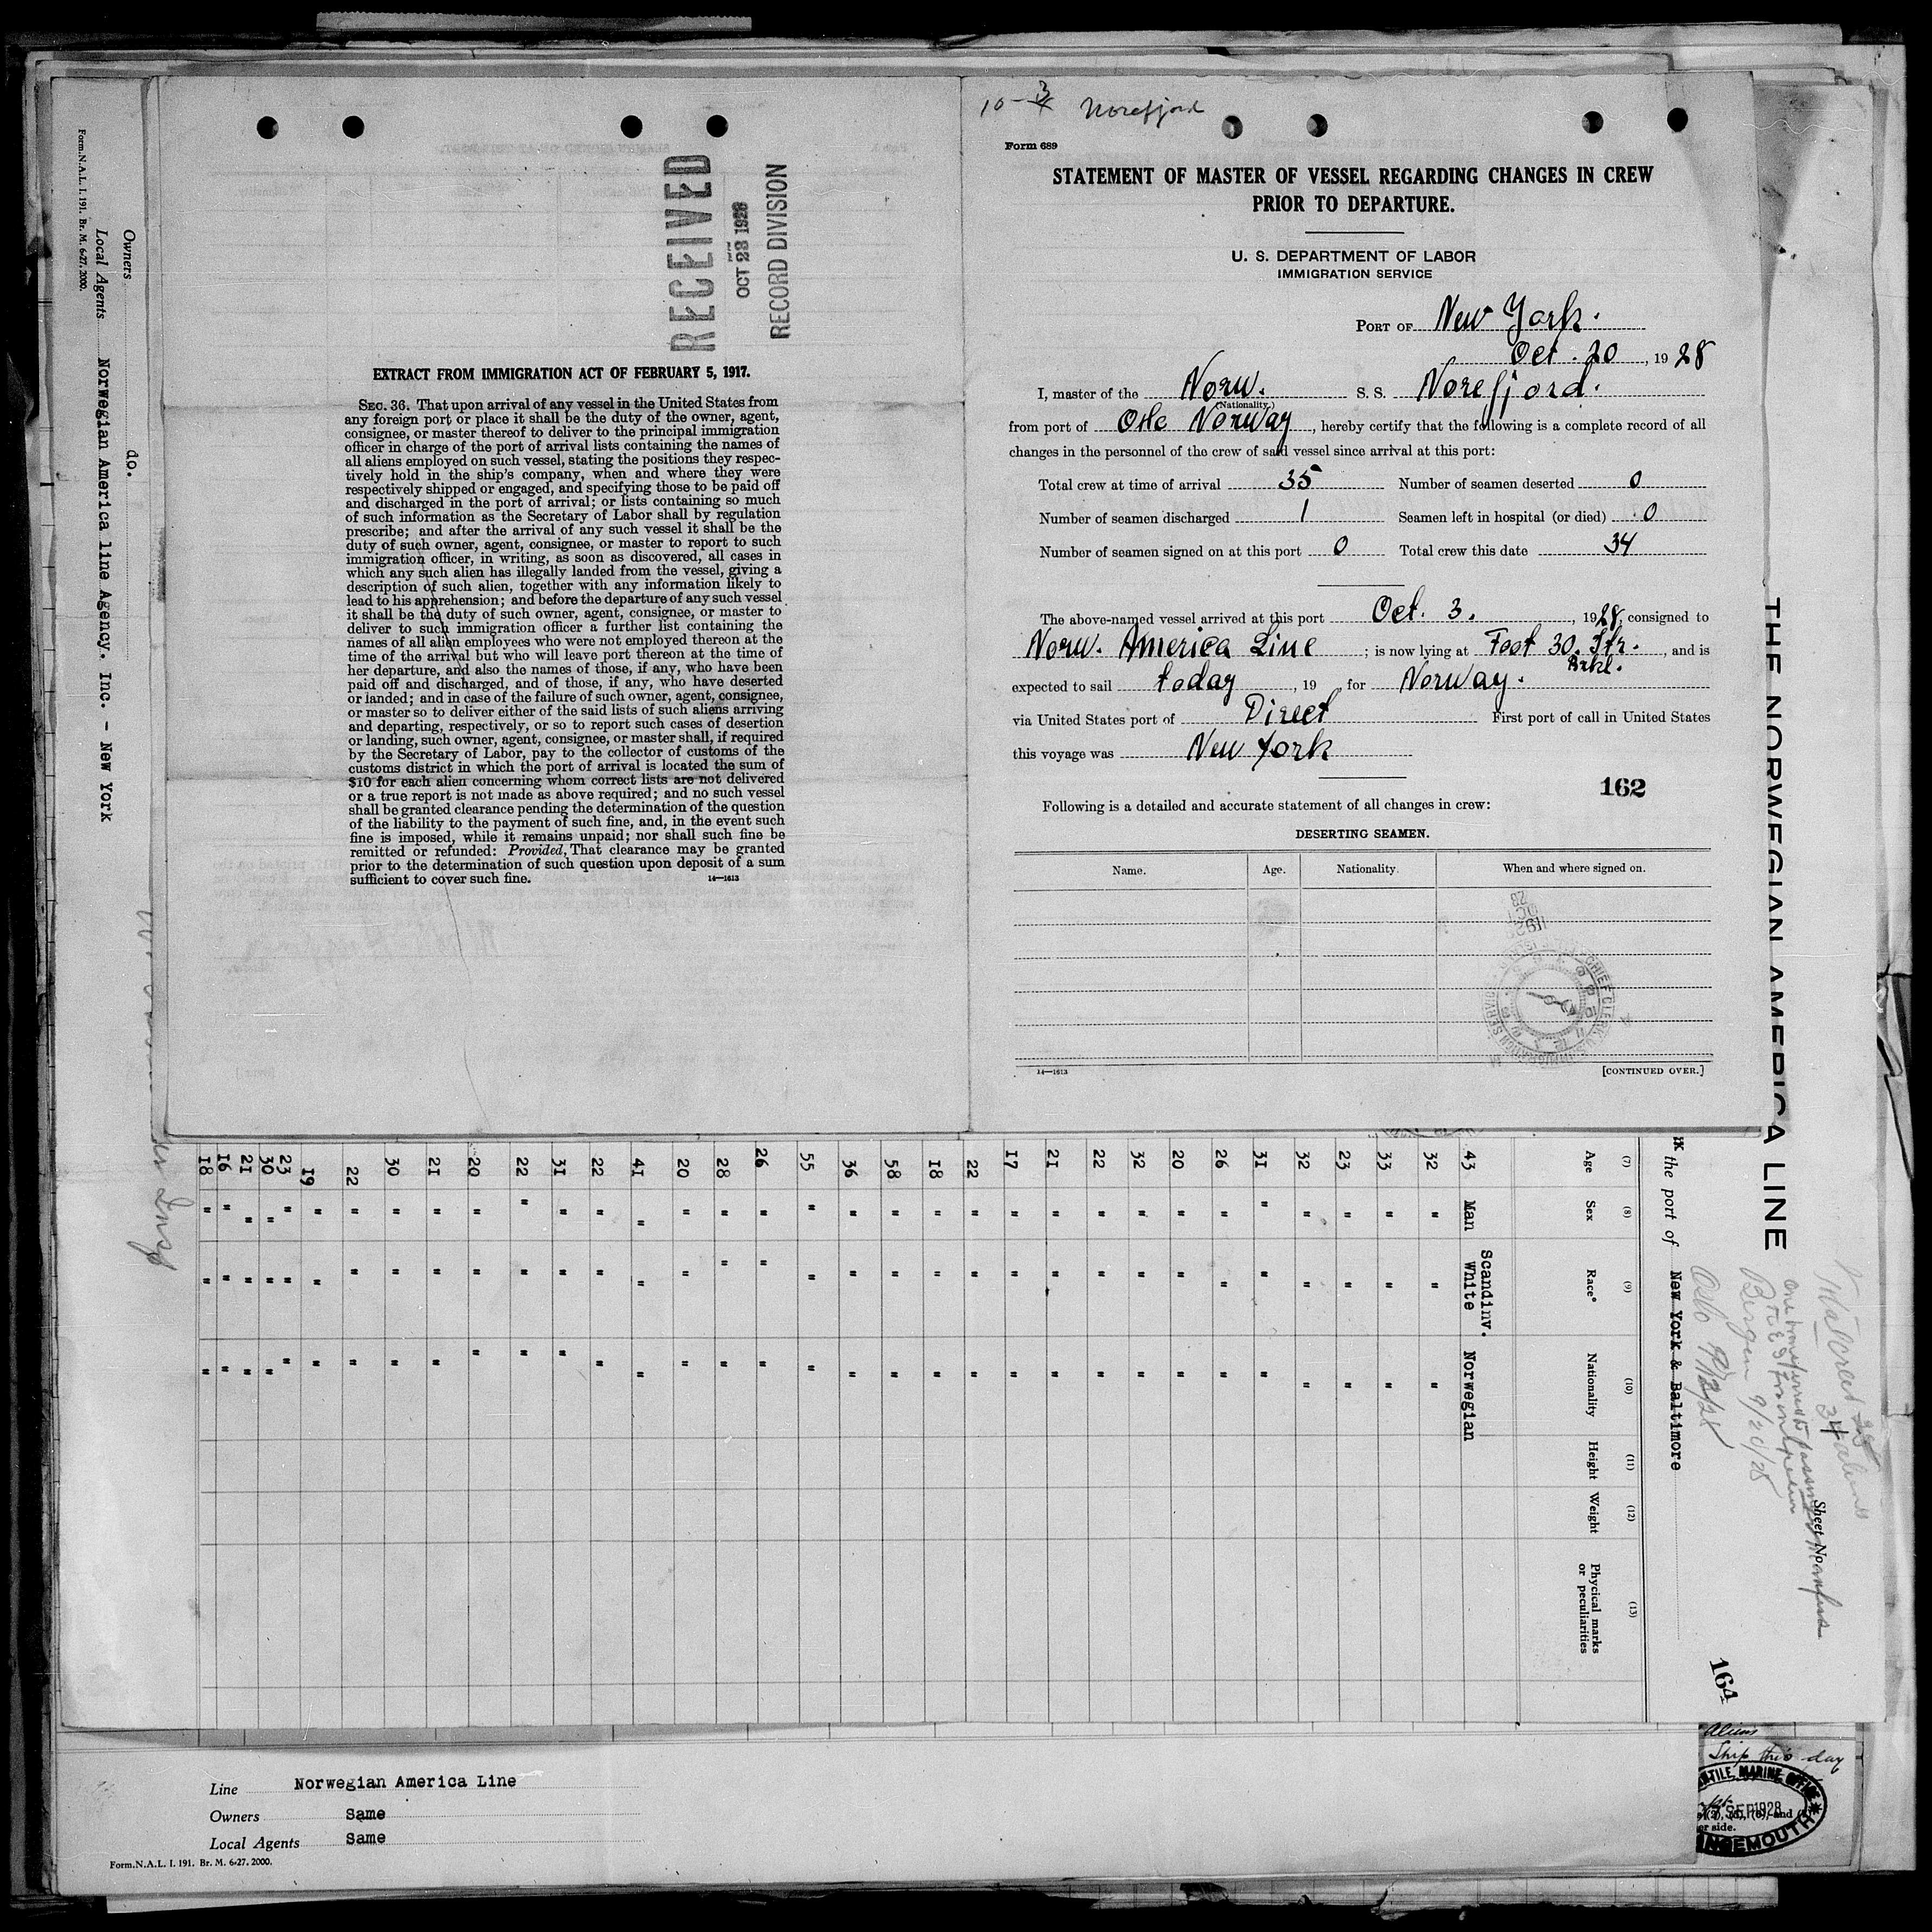 10-3 Norefjord
Form 689
STATEMENT OF MASTER OF VESSEL REGARDING CHANGES IN CREW
PRIOR TO DEPARTURE.
U. S. DEPARTMENT OF LABOR
IMMIGRATION SERVICE
PORT OF New York.
Oct. 20, 1928
I, master of the Norw. S. S. Norefjord.
(Nationality.)
from port of Oslo Norway, hereby certify that the following is a complete record of all
changes in the personnel of the crew of said vessel since arrival at this port:
Total crew at time of arrival 35 Number of seamen deserted 0
Number of seamen discharged 1 Seamen left in hospital (or died) 0
Number of seamen signed on at this port 0 Total crew this date 34
The above-named vessel arrived at this port Oct. 3., 1928, consigned to
Norw. America Line; is now lying at Foot 30. Str. Brkl., and is
expected to sail today, 19 for Norway.
via United States port of Direct First port of call in United States
this voyage was New York
162
Following is a detailed and accurate statement of all changes in crew:
DESERTING SEAMEN.
Name. Age. Nationality. When and where signed on.
14—1613 [CONTINUED OVER.]
RECEIVED
OCT 23 1928
RECORD DIVISION
EXTRACT FROM IMMIGRATION ACT OF FEBRUARY 5, 1917.
SEC. 36. That upon arrival of any vessel in the United States from
any foreign port or place it shall be the duty of the owner, agent,
consignee, or master thereof to deliver to the principal immigration
officer in charge of the port of arrival lists containing the names of
all aliens employed on such vessel, stating the positions they respec-
tively hold in the ship's company, when and where they were
respectively shipped or engaged, and specifying those to be paid off
and discharged in the port of arrival; or lists containing so much
of such information as the Secretary of Labor shall by regulation
prescribe; and after the arrival of any such vessel it shall be the
duty of such owner, agent, consignee, or master to report to such
immigration officer, in writing, as soon as discovered, all cases in
which any such alien has illegally landed from the vessel, giving a
description of such alien, together with any information likely to
lead to his apprehension; and before the departure of any such vessel
it shall be the duty of such owner, agent, consignee, or master to
deliver to such immigration officer a further list containing the
names of all alien employees who were not employed thereon at the
time of the arrival but who will leave port thereon at the time of
her departure, and also the names of those, if any, who have been
paid off and discharged, and of those, if any, who have deserted
or landed; and in case of the failure of such owner, agent, consignee,
or master so to deliver either of the said lists of such aliens arriving
and departing, respectively, or so to report such cases of desertion
or landing, such owner, agent, consignee, or master shall, if required
by the Secretary of Labor, pay to the collector of customs of the
customs district in which the port of arrival is located the sum of
$10 for each alien concerning whom correct lists are not delivered
or a true report is not made as above required; and no such vessel
shall be granted clearance pending the determination of the question
of the liability to the payment of such fine, and, in the event such
fine is imposed, while it remains unpaid; nor shall such fine be
remitted or refunded: Provided, That clearance may be granted
prior to the determination of such question upon deposit of a sum
sufficient to cover such fine. 14—1613
THE NORWEGIAN AMERICA LINE
Sheet No
the port of New York & Baltimore
Oslo 9/13/28
Bergen 9/20/28
164
(7) (8) (9) (10) (11) (12) (13)
Age Sex Race* Nationality Height Weight Phycical marks
or peculiarities
43 Man Scandinv. White Norwegian
32 " " "
33 " " "
23 " " "
32 " " "
31 " " "
26 " " "
20 " " "
32 " " "
22 " " "
21 " " "
17 " " "
22 " " "
18 " " "
58 " " "
36 " " "
55 " " "
26 " " "
28 " " "
20 " " "
41 " " "
22 " " "
31 " " "
22 " " "
20 " " "
21 " " "
30 " " "
22 " " "
19 " " "
23 " " "
30 " " "
21 " " "
16 " " "
18 " " "
Owners do.
Local Agents Norwegian America line Agency. Inc. - New York
Form.N.A.L. I. 191. Br. M. 6-27. 2000.
Line Norwegian America Line
Owners Same
Local Agents Same
Form.N.A.L. I. 191. Br. M. 6-27. 2000.
Aliens
Ship this day
MARINE OFFICE
SEP 1928
er side.